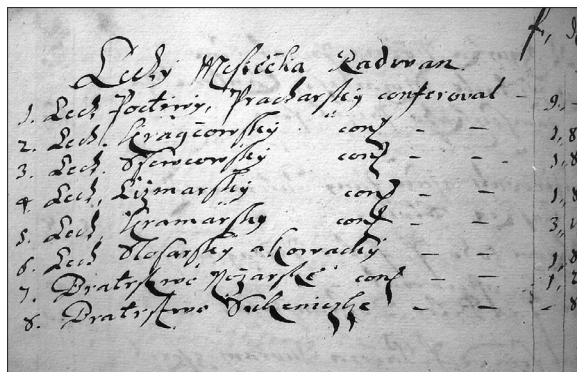 f,
Cechy Mestečka Radwan
1. Cech Poctiwy, Pracharsky conferoval - 9. -
2. Cech. Kragčowsky conf - - 1,8
3. Cech. Ssewcowsky conf - - 1,8
4. Cech, Cyzmarsky conf - - 1,8
5. Cech Kramarsky conf - - 3,
6. Cech Slosarsky akowacky - - 1,8
7. Bratrstwo Nozarske conf - - 1,
8. Bratrstwo - - - 8